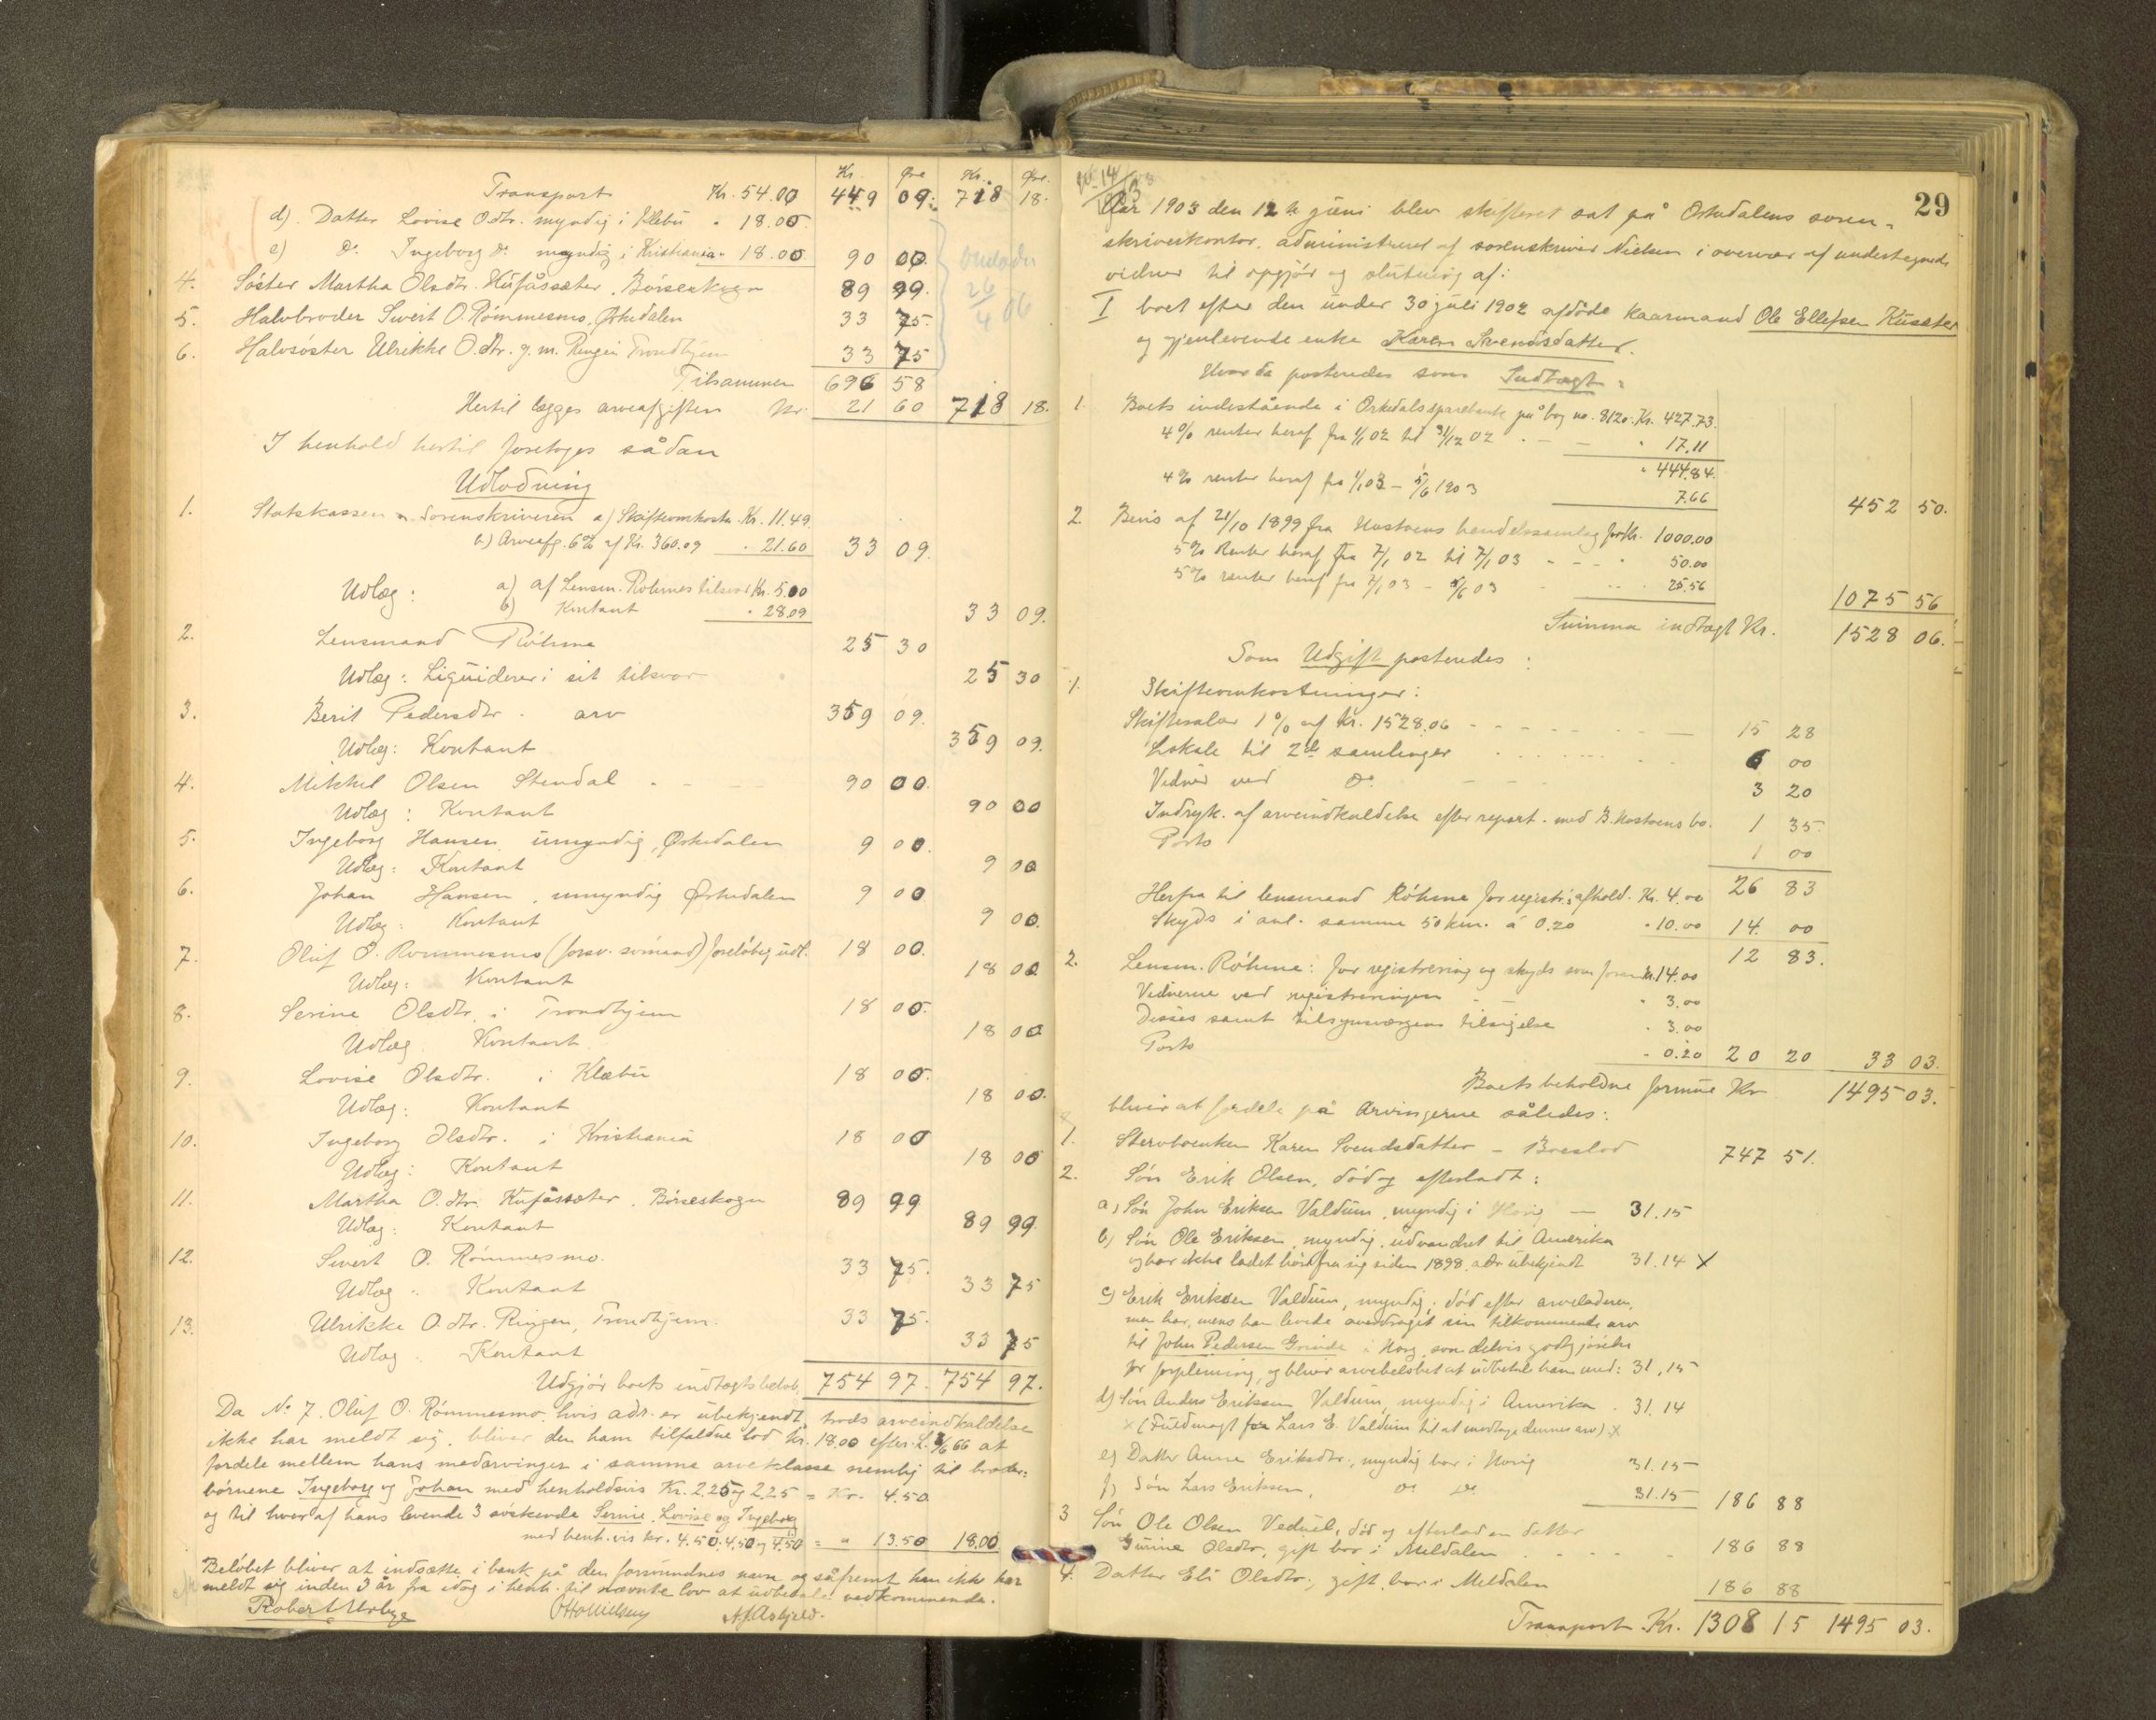 Kr. Øre Kr. Øre.
Transport Kr. 54.00 449 09. 718 18.
d). Datter Lovise Odtr. myndig i Klebu " 18.00.
e) Do Ingeborg do myndig i Kristiania " 18.00 90 00.
4. Søster Martha Olsdtr. Kufåssæter, Börseskogn 89 99.
5. Halvbroder Sivert O. Römmesmo, Ørkedalen 33 75.
6. Halvsöster Ulrikke O.dtr. g.m. Ringen Trondhjem 33 75
Tilsammen 696 58
Hertil lægges arveafgiften Kr. 21 60 718 18.
I henhold hertil foretoges sådan
Udlodning
1. Statskassen v. Sorenskriveren a) Skifteomkostn. Kr. 11.49.
b) Arveafg. 6% af Kr. 360.09 " 21.60 33 09.
Udlæg: a) af Lensm. Röhmes tilsvar Kr. 5.00
b) Kontant " 28.09 33 09.
2. Lensmand Röhme 25 30
Udlæg: Liquiderer i sit tilsvar 25 30
3. Berit Pedersdtr. arv 359 09.
Udlæg: Kontant 359 09.
4. Mikkel Olsen Stendal 90 00.
Udlæg: Kontant 90 00
5. Ingeborg Hansen, umyndig, Ørkedalen 9 00.
Udlæg: Kontant 9 00
6. Johan Hansen, umyndig Ørkedalen 9 00
Udlæg: Kontant 9 00.
7. Oluf O. Rommesmo (forsv. sömand) foreløbig udl. 18 00.
Udlæg: Kontant 18 00
8. Serine Olsdtr. i Trondhjem 18 00.
Udlæg Kontant 18 00
9. Lovise Olsdtr. i Klæbu 18 00.
Udlæg: Kontant 18 00.
10. Ingeborg Olsdtr. i Kristiania 18 00
Udlæg: Kontant 18 00
11. Martha O.dtr. Kufåssæter, Börseskogn 89 99
Udlæg: Kontant 89 99
12. Sivert O. Römmesmo. 33 75.
Udlæg: Kontant 33 75
13. Ulrikke O.dtr. Ringen, Trondhjem. 33 75.
Udlæg: Kontant 33 75
Udgjör boets indtægtsbelöb, 754 97. 754 97.
Da No 7, Oluf O. Römmesmo, hvis adr. er ubekjendt, trods arveindkaldelse
ikke har meldt sig, bliver den ham tilfaldne lod kr. 18.00 efter L. 66 at
fordele mellem hans medarvinger i samme arveklasse nemlig til broder-
börnene Ingeborg og Johan med henholdsvis Kr. 2.25 og 2.25 = Kr. 4.50
og til hver af hans levende 3 söskende Serine, Lovise og Ingeborg
med henh.vis kr. 4.50, 4.50 og 4.50 = " 13.50 18.00
Belöbet bliver at indsætte i bank på den forsvundnes navn og såfremt han ikke har
meldt sig inden 3 år fra idag i henh. til nævnte lov at udbetale vedkommende.
29
Aar 1903 den 12te juni blev skifteret sat på Orkedalens soren-
skriverkontor, administreret af sorenskriver Nielsen i overvær af undertegnede
vidner til opgjör og slutning af:
I boet efter den under 30 juli 1902 afdöde kaarmand Ole Ellefsen Kusæter
og gjenlevende enke Karen Svendsdatter.
Hvorda posteredes som Indtægt:
1. Boets indestående i Orkedals sparebank på bog no. 8120. Kr. 427.73.
4% renter heraf fra 1/1 02 til 31/12 02 " 17.11
" 444.84.
4% renter heraf fra 1/1 03 - 5/6 1903 7.66 452 50.
2. Bevis af 21/10 1899 fra Hostoens handelssamlag for Kr. 1000.00
5% Renter heraf fra 7/1 02 til 7/1 03 50.00
5% renter heraf fra 7/1 03 - 5/6 03 25.56 1075 56
Summa indtægt Kr. 1528 06.
Som Udgift posteredes:
1. Skifteomkostninger:
Skiftesalær 1% af Kr. 1528.06 15 28
Lokale til 2de samlinger 6 00
Vidner ved do 3 20
Indryk. af arveindkaldelse efter repart. med B. Hostoens bo. 1 35
Porto 1 00
26 83
Herfra til lensmand Röhme for registr. afhold. Kr. 4.00
Skyds i anl. samme 50 km. á 0.20 " 10.00 14 00
12 83.
2. Lensm. Röhme: for registrering og skyds som foran kr. 14.00
Vidnerne ved registreringen " 3.00
Disses samt tilsynsværgens tilsigelse " 3.00
Porto " 0.20 20 20 33 03.
Boets beholdne formue Kr 1495 03.
bliver at fordele på Arvingerne således:
1. Stervboenken Karen Svendsdatter - Boeslod 747 51.
2. Sön Erik Olsen, död og efterladt:
a) Sön John Eriksen Valdum, myndig i Horg — 31.15
b) Sön Ole Eriksen, myndig, udvandret til Amerika
og har ikke ladet höre fra sig siden 1898, adr ubekjendt 31.14 X
c) Erik Eriksen Valdum, myndig, död efter arveladeren,
men har, mens han levede overdraget sin tilkommende arv
til John Pedersen Grinde i Horg, som delvis godtgjörelse
for forpleining, og bliver arvebelöbet at udbetale ham med: 31.15
d) Sön Anders Eriksen Valdum, myndig i Amerika . 31.14
x (Fuldmagt fra Lars E. Valdum til at modtage dennes arv) x
e) Datter Anne Eriksdtr., myndig bor i Horg 31.15
f) Sön Lars Eriksen, do do 31.15 186 88
3 Sön Ole Olsen Veduel, död og efterlod en datter
Gunne Olsdtr, gift bor i Meldalen 186 88
4. Datter Eli Olsdtr., gift bor i Meldalen 186 88
Transport Kr. 1308 15 1495 03.